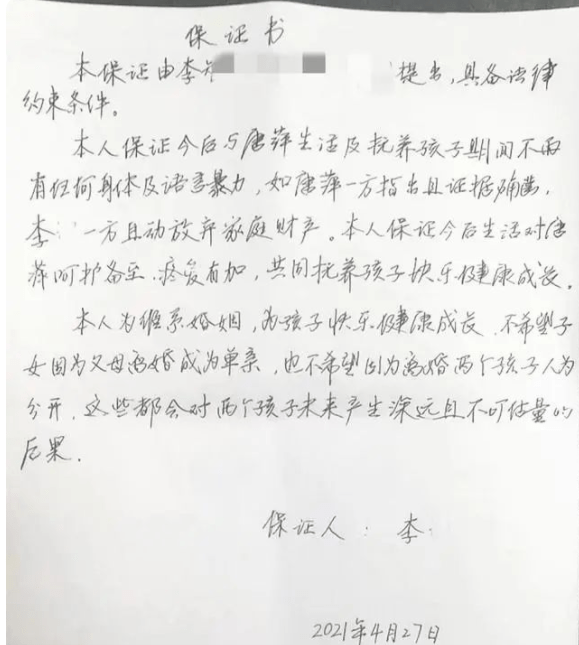 保证书
本保证由李 提出，具备法律
约束条件。
本人保证今后与唐萍生活及抚养孩子期间不再
有任何身体及语言暴力，如唐萍一方指出且证据确凿，
李 一方自动放弃家庭财产。本人保证今后生活对唐
萍呵护备至、疼爱有加，共同抚养孩子快乐健康成长。
本人为维系婚姻，为孩子快乐健康成长，不希望子
女因为父母离婚成为单亲，也不希望因为离婚两个孩子人为
分开，这些都会对两个孩子未来产生深远且不可估量的
后果.
保证人：李
2021年4月27日